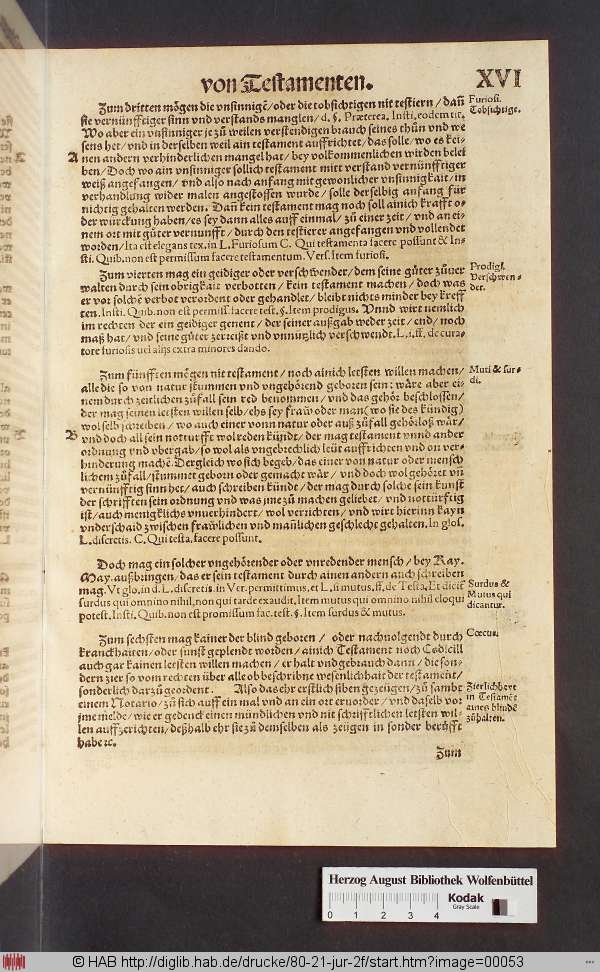 von Testamenten.
XVI
Zum dritten mögen die vnsinnigẽ / oder die tobsichtigen nit testiern / dañ
sie vernünfftiger sinn vnd verstands manglen / d. §. Præterea. Insti. eodem tit.
Furiosi.
Tobsichtige.
Wo aber ein vnsinniger je zů weilen verstendigen brauch seines thün vnd we
sens het / vnd in derselben weil ain testament auffrichtet / das solle / wo es kei-
A
nen andern verhinderlichen mangel hat / bey volkommenlichen wirden belei
ben / Doch wo ain vnsinniger sollich testament mitt verstand vernünfftiger
weiß angefangen / vnd also nach anfang mit gewonlicher vnsinnigkait / in
verhandlung wider malen angestossen wurde / solle derselbig anfang für
nichtig gehalten werden. Dañ kein testament mag noch soll ainich krafft o-
der würckung haben / es sey dann alles auff einmal / zů einer zeit / vnd an ei-
nem ort mit gůter vernunfft / durch den testierer angefangen vnd vollendet
worden / Ita est elegans tex. in L. Furiosum C. Qui testamenta facere possunt & In-
sti. Quib. non est permissum facere testamentum. Vers. Item furiosi.
Zum vierten mag ein geidiger oder verschwender / dem seine gůter zůuer
walten durch sein obrigkait verbotten / kein testament machen / doch was
er vor solchẽ verbot verordent oder gehandlet / bleibt nichts minder bey krefft
ten. Insti. Quib. non est permiss. facere test. §. Item prodigus. Vnnd wirt nemlich
im rechten der ein geidiger genent / der seiner außgab weder zeit / end / noch
maß hat / vnd seine gůter zerreißt vnd vnnützlich verschwendt. L. i. ff. de cura-
tore furiosis uel alijs extra minores dando.
Prodigi.
Verschwen-
der.
Zum fünfften mögen nit testament / noch ainich letsten willen machen /
alle die so von natur stummen vnd vngehörend geboren sein: wäre aber ei-
nem durch zeitlichen zůfall sein red benommen / vnd das gehör beschlossen /
der mag seinen letsten willen selb / ehs sey fraw oder man (wo sie des kündig)
wol selb schreiben / wo auch einer vonn natur oder auß zůfall gehörloß wär /
B
vnd doch all sein notturfft wol reden kündt / der mag testament vnnd ander
ordnung vnd vbergab / so wol als vngebrechlich leüt auffrichten vnd on ver-
hinderung machẽ. Dergleich wo sich begeb / das einer von natur oder mensch
lichem zůfall / stummet geborn oder gemacht wär / vnd doch wol gehöret vñ
vernünfftig sinn het / auch schreiben kündt / der mag durch solche sein kunst
der schrifften sein ordnung vnd was jme zů machen geliebet / vnd notturftig
ist / auch menigklichs vnuerhindert / wol verrichten / vnd wirt hierinn kayn
vnderschaid zwischen frawlichen vnd mañlichen geschlecht gehalten. In glos.
L. discretis. C. Qui testa. facere possunt.
Muti & sur-
di.
Doch mag ein solcher vngehörender oder vnredender mensch / bey Kay.
May. außbringen / das er sein testament durch ainen andern auch schreiben
mag. Vt glo. in d. L. discretis. in Ver. permittimus, et L. si mutus. ff. de Testa. Et dicit
surdus qui omnino nihil, non qui tarde exaudit. Item mutus qui omnino nihil eloqui
potest. Insti. Quib. non est promissum fac. test. §. Item surdus & mutus.
Surdus &
Mutus qui
dicantur.
Zum sechsten mag kainer der blind geboren / oder nachuolgendt durch
kranckhaiten / oder sunst geplendt worden / ainich Testament noch Codicill
auch gar kainen letsten willen machen / er halt vnd gebrauch dann / die son-
dern zier so vom rechten über alle ob beschribne wesenlichhait der testament /
sonderlich darzů geordent. Also das ehr erstlich siben gezeügen / zů sambt
einem Notario / zů sich auff ein mal vnd an ein ort eruorder / vnd daselb vor
jme melde / wie er gedenck einen mündlichen vnd nit schrifftlichen letsten wil-
len auffzerichten / deßhalb ehr sie zů demselben als zeügen in sonder berůfft
habe ꝛc.
Cœcus.
Zierlichheyt
in Testamẽt
aines blindẽ
zůhalten.
Zum
Herzog August Bibliothek Wolfenbüttel
0 1 2 3 4
Kodak
Gray Scale
© HAB http://diglib.hab.de/drucke/80-21-jur-2f/start.htm?image=00053